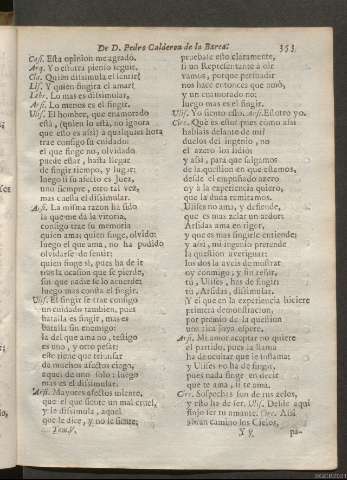 De D. Pedro Calderon de la Barca. 353
Cas. Esta opinion me agrado.
Arq. Yo estotra pienso seguir.
Cla. Quien dissimula el sentir?
Lis. Y quien fingira el amar?
Lebr. Lo mas es dissimular.
Arsi. Lo menos es el fingir.
Ulis. El hombre, que enamorado
està, (quien lo està, no ignora
que esto es assi) à qualquier hora
trae consigo su cuidado:
el que finge no, olvidado
puede estar, hasta llegar
de fingir tiempo, y lugar;
luego si su afecto es Juez,
uno siempre, otro tal vez,
mas cuesta el dissimular.
Arsi. La misma razon ha sido
la que me dà la vitoria,
contigo trae su memoria
quien ama; quien finge, olvido:
luego el que ama, no ha podido
olvidarse de sentir;
quien finge sì, pues ha de ir
tras la ocasion que se pierde,
sin que nadie se lo acuerde;
luego mas cuesta el fingir.
Ulis. El fingir se trae consigo
un cuidado tambien, pues
batalla es fingir, mas es
batalla sin enemigo:
la del que ama no, testigo
es uno, y otro pesar:
este tiene que triunfar
de muchos afectos ciego,
aquel de uno solo: luego
mas es el dissimular.
Arsi. Mayores afectos siente,
que el que siente un mal cruel,
y le dissimula, aquel
que le dice, y no le siente;
Tom.V.
pruebase esto claramente,
si un Representante à oir
vamos, porque persuadir
nos hace entonces que amò,
y un enamorado no;
luego mas es el fingir.
Ulis. Yo siento esto. Arsi. Estotro yo.
Circ. Què es esto? pues como assi
hablais delante de mi?
duelos del ingenio, no
el azero los lidiò
y assi, para que salgamos
de la question en que estamos,
desde el empuñado azero
oy à la experiencia quiero,
que la duda remitamos.
Ulises no ama, y defiende,
que es mas zelar un ardor:
Arsidas ama en rigor,
y que es mas fingirle entiende;
y assi, mi ingenio pretende
la question averiguar:
los dos la aveis de mostrar
oy conmigo, y sin reñir,
tù, Ulises, has de fingir:
tù, Arsidas, dissimular.
Y el que en la experiencia hiciere
primera demonstracion,
por premio de la question
una rica joya espere.
Arsi. Mi amor aceptar no quiere
el partido, pues la llama
ha de ocultar que le inflama;
y Ulises no ha de fingir,
pues nada finge en decir
que te ama, si te ama.
Circ. Sospechas son de tus zelos,
y esso ha de ser. Ulis. Desde aqui
finjo ser tu amante. Circ. Assi
vivan camino los Cielos,
Y y pa-